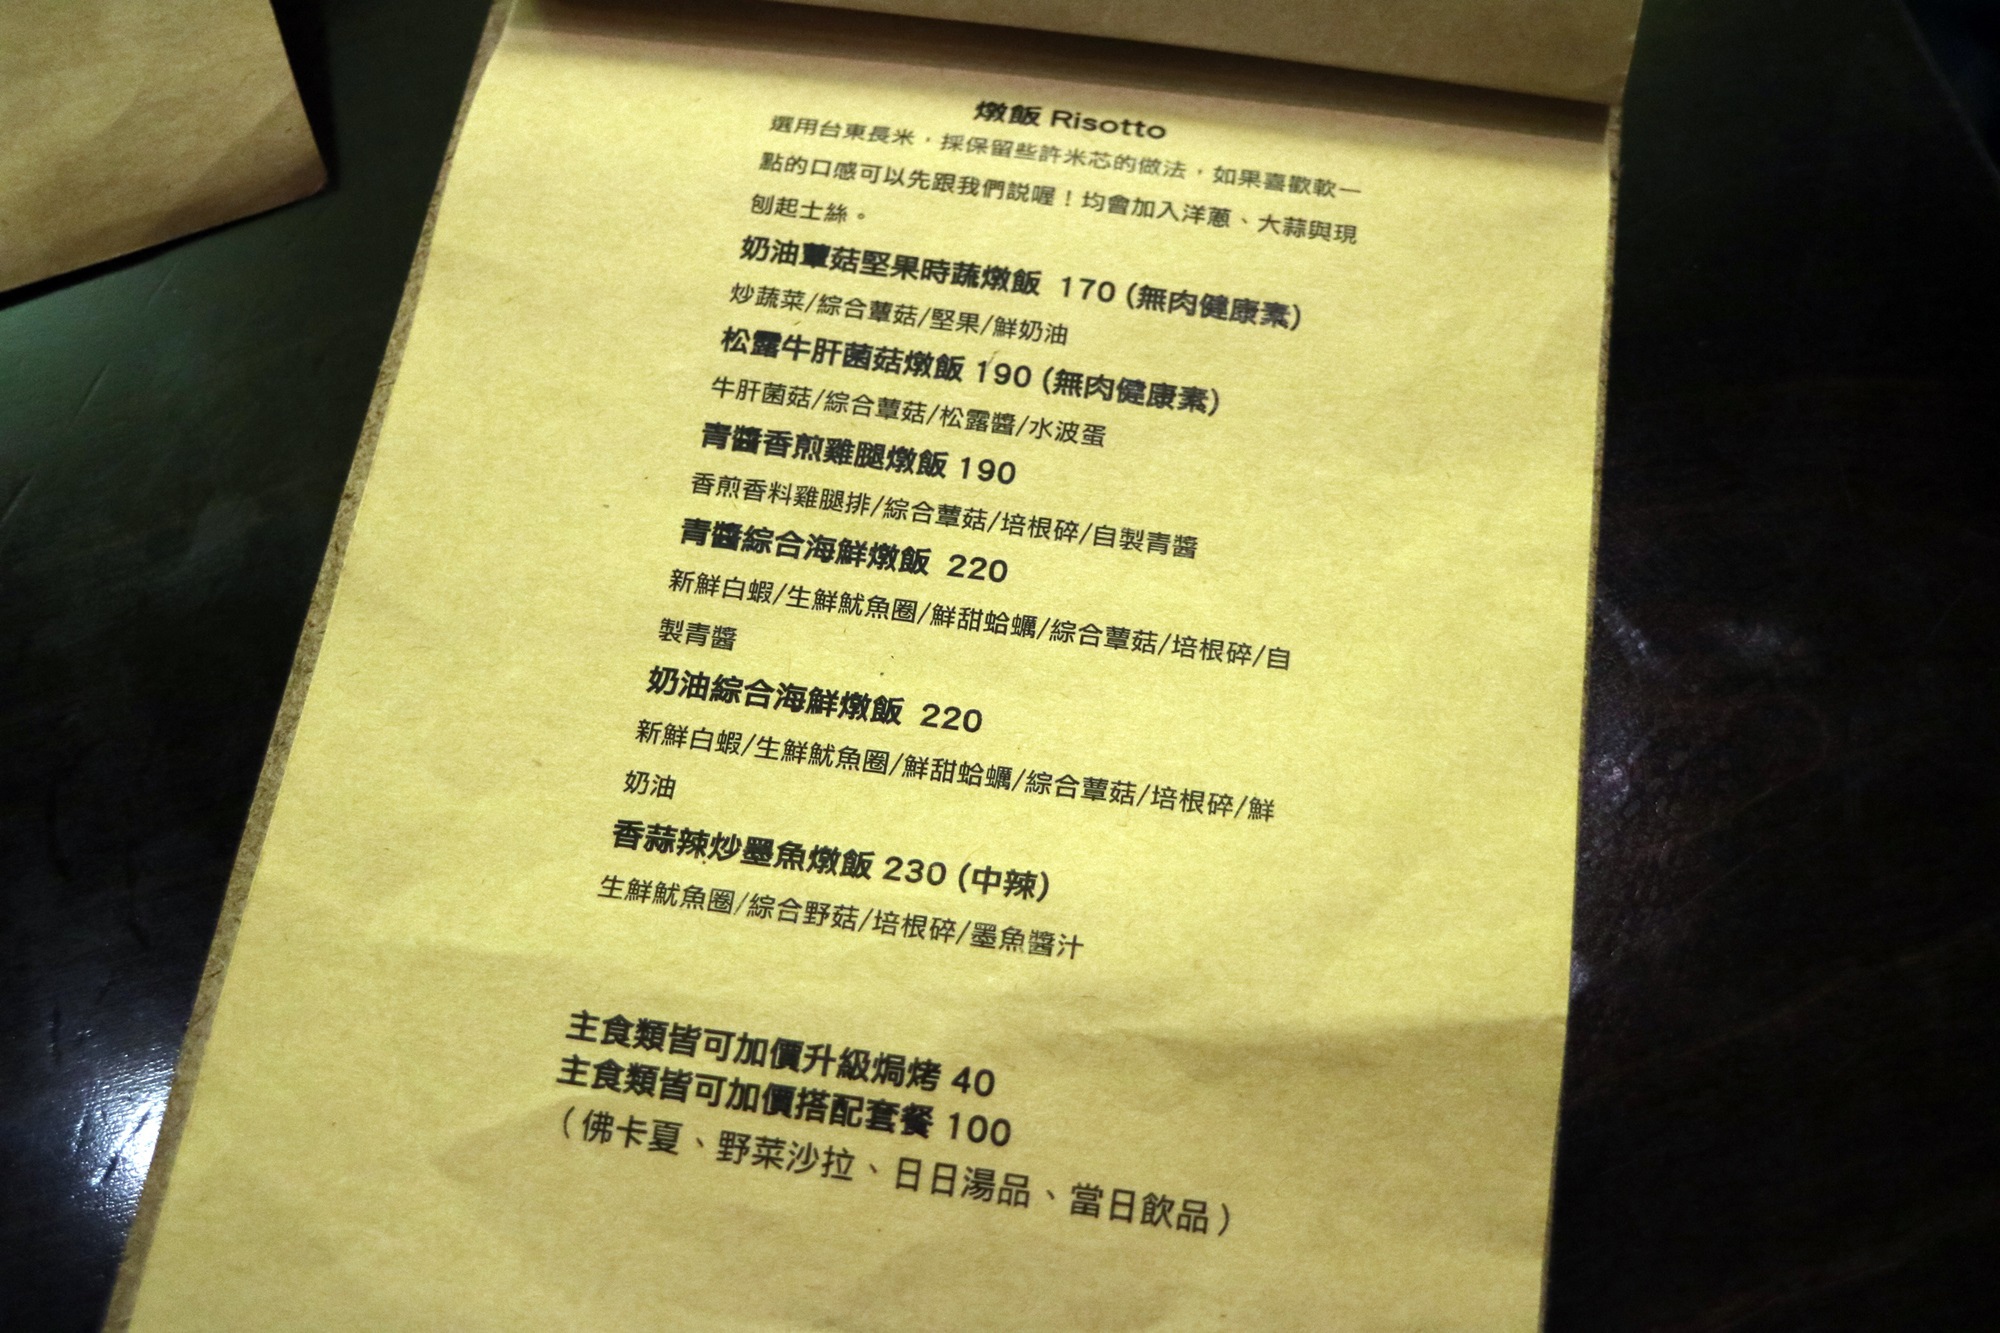 燉飯 Risotto
選用台東長米，採保留些許米芯的做法，如果喜歡軟一
點的口感可以先跟我們說喔！均會加入洋蔥、大蒜與現
刨起士絲。
奶油蕈菇堅果時蔬燉飯 170 (無肉健康素)
炒蔬菜/綜合蕈菇/堅果/鮮奶油
松露牛肝菌菇燉飯 190 (無肉健康素)
牛肝菌菇/綜合蕈菇/松露醬/水波蛋
青醬香煎雞腿燉飯 190
香煎香料雞腿排/綜合蕈菇/培根碎/自製青醬
青醬綜合海鮮燉飯 220
新鮮白蝦/生鮮魷魚圈/鮮甜蛤蠣/綜合蕈菇/培根碎/自
製青醬
奶油綜合海鮮燉飯 220
新鮮白蝦/生鮮魷魚圈/鮮甜蛤蠣/綜合蕈菇/培根碎/鮮
奶油
香蒜辣炒墨魚燉飯 230 (中辣)
生鮮魷魚圈/綜合野菇/培根碎/墨魚醬汁
主食類皆可加價升級焗烤 40
主食類皆可加價搭配套餐 100
（佛卡夏、野菜沙拉、日日湯品、當日飲品）